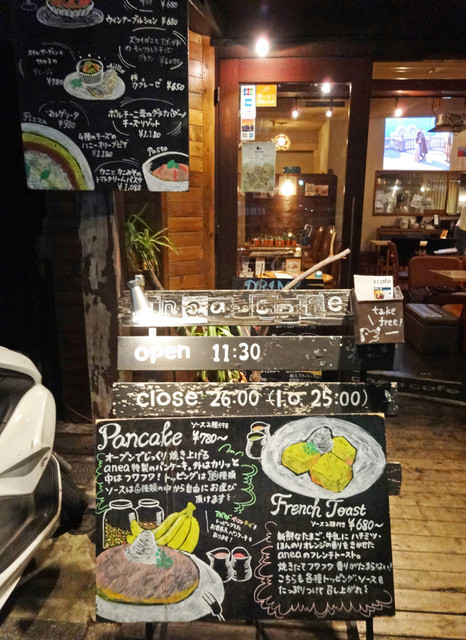 ¥680
ウィンナーブルション ¥680
¥780
カプレーゼ ¥650
Pizza
マルゲリータ
4種のチーズの
ハニーオリーブピザ
¥1.180
ポルチーニ茸の
チーズ・リゾット
¥1.180
Pasta
カニとカニみその
トマトクリームパスタ
¥1.080
JCB
anea cafe
cafe
take
free!
open 11:30
close 26:00 (l.o 25:00)
Pancake
ソース2種付き
¥780~
オーブンでじっくり焼き上げる
anea特製のパンケーキ。外はカリッと
中はフワフワ!トッピングは
ソースは
種類の中から自由にお選び
頂けます
French Toast
ソース2種付き
¥680~
新鮮なたまご、牛乳に ハチミツ・
ほんのりオレンジの香りをきかせた
aneaのフレンチトースト。
焼きたてフワフワ 香りがたまらない!
こちらも各種トッピング・ソースを
たっぷりつけて召し上がれ